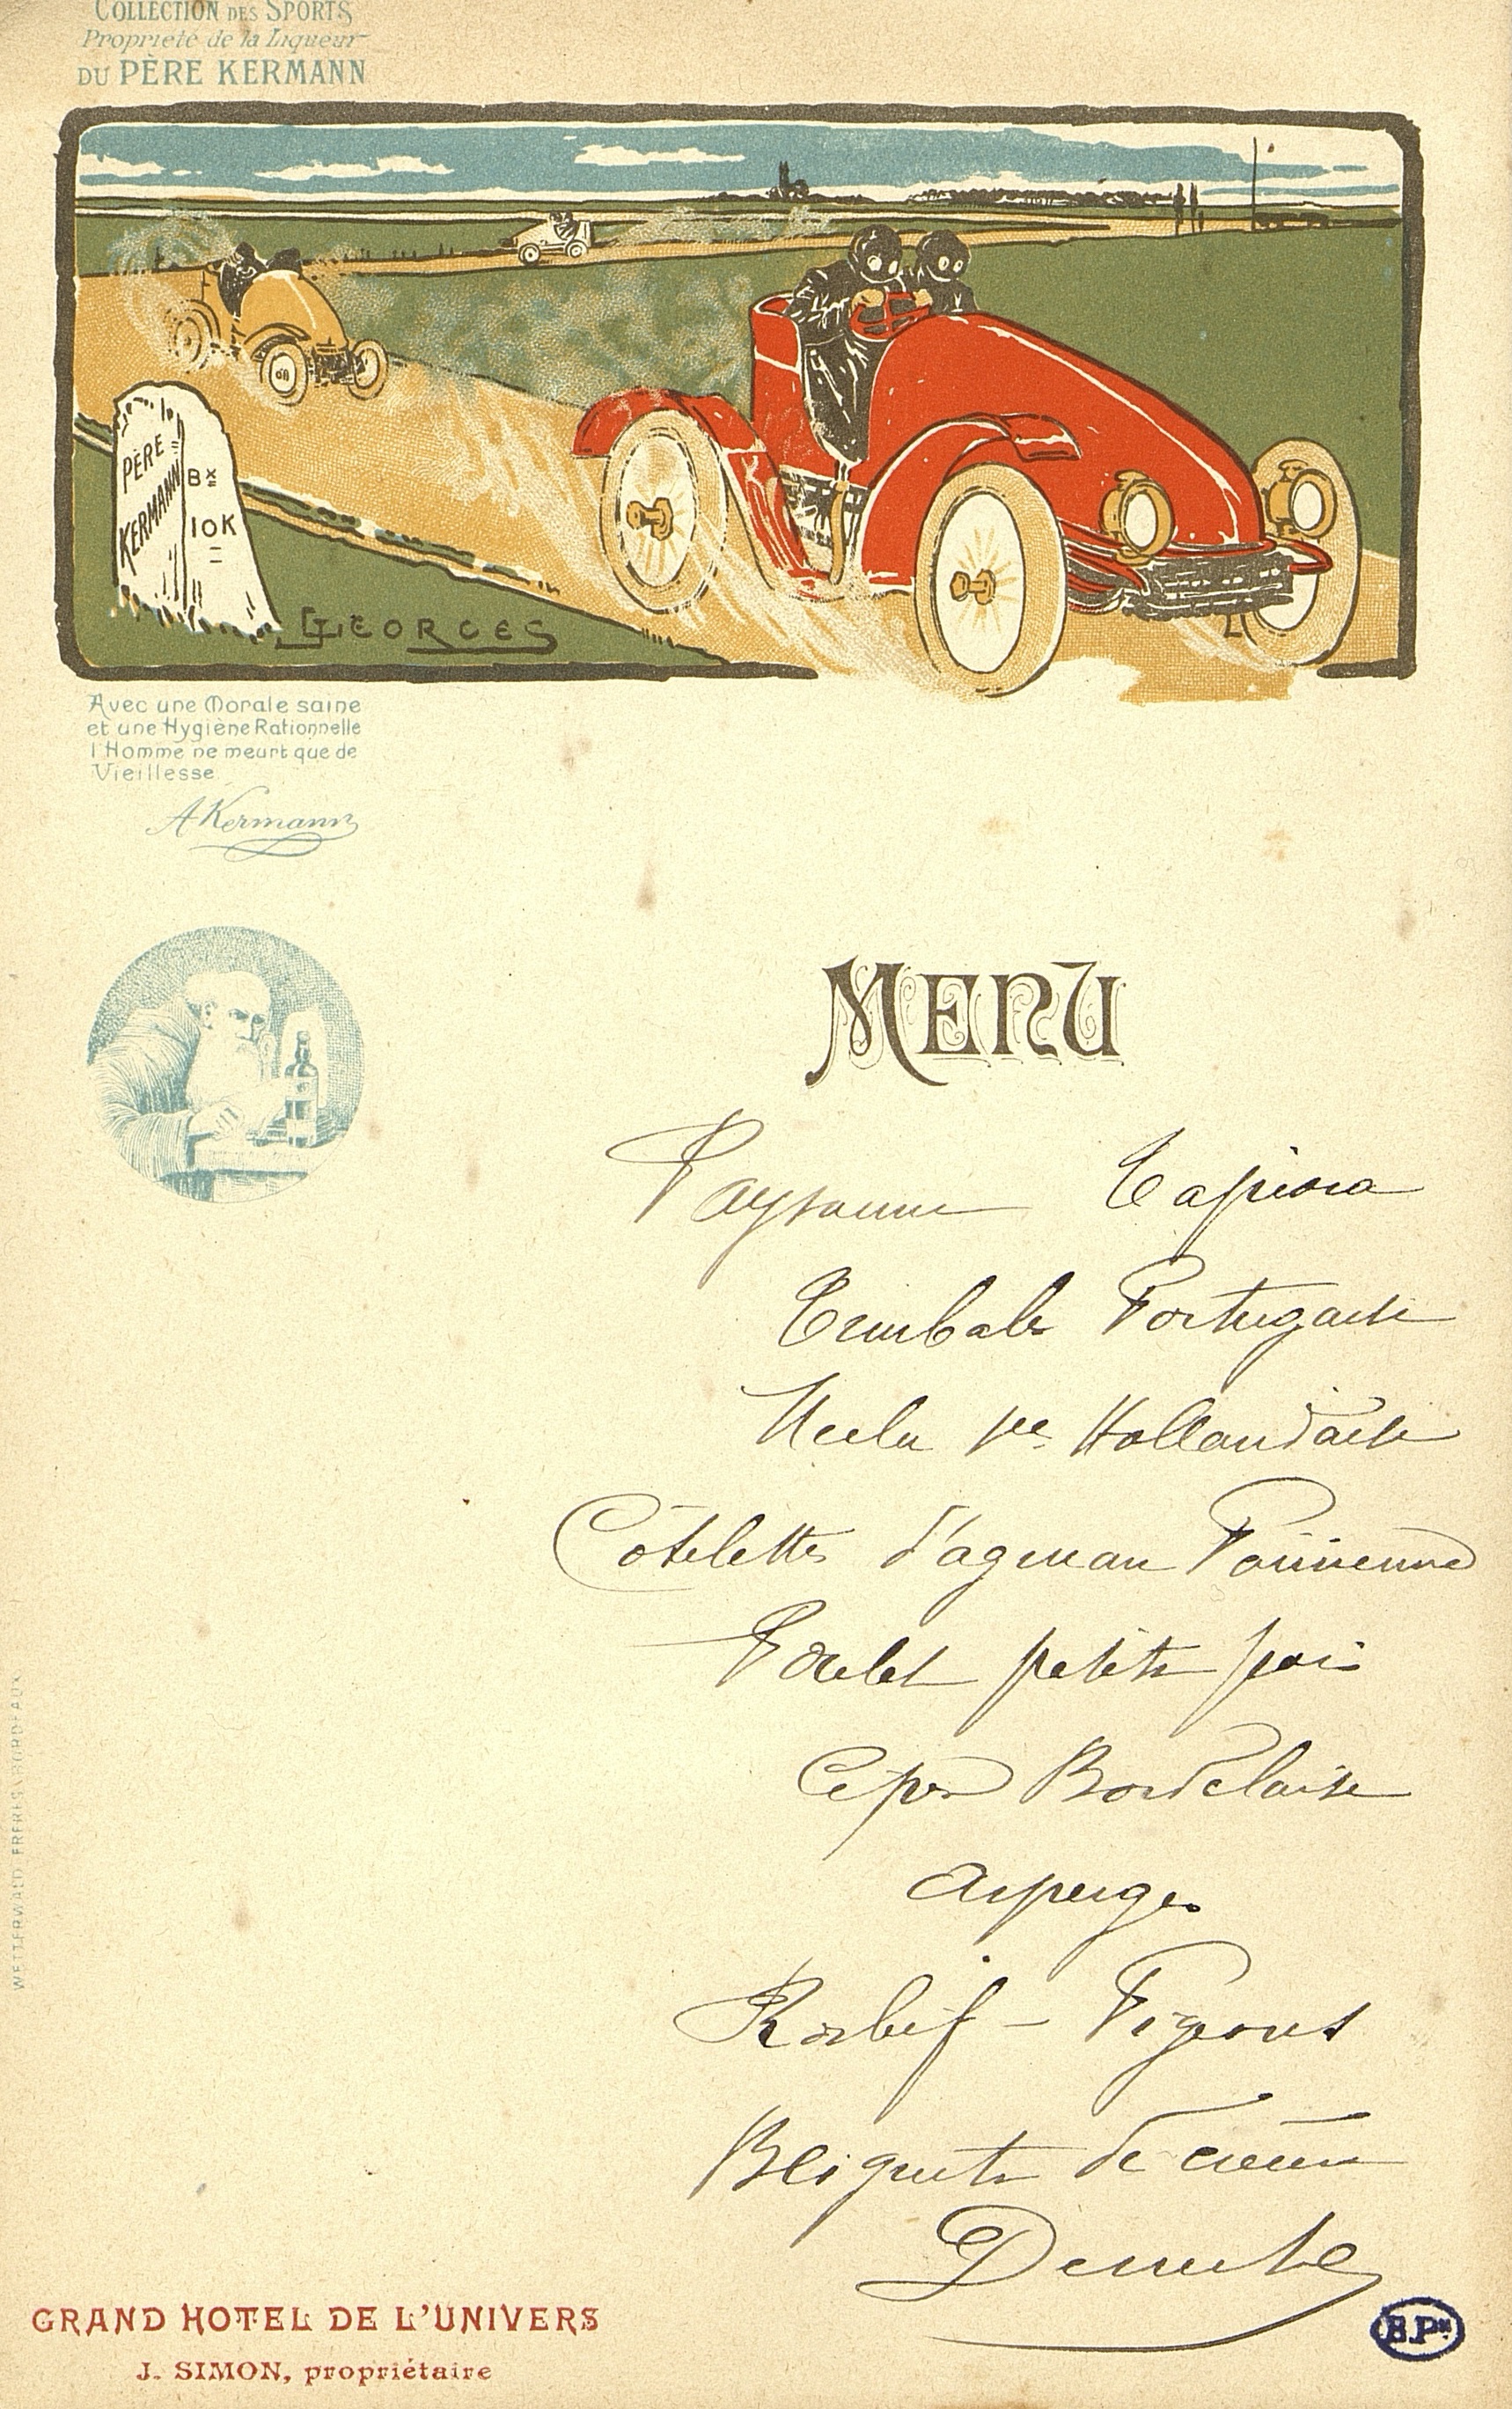 COLLECTION DES SPORTS
Propriété de la Liqueur
DU PÈRE KERMANN
PÈRE
KERMANN
Bx
10K
GEORGES
Avec une Morale saine
et une Hygiène Rationnelle
l'Homme ne meurt que de
Vieillesse
A Kermann
MENU
Paysanne Tapioca
Timbale Portugaise
Merlu sce Hollandaise
Côtelettes d'agneau Parisienne
Poulet petits pois
Cèpes Bordelaise
Asperges
Rosbif - Pigeons
Beignets de crème
Desserts
GRAND HOTEL DE L'UNIVERS
J. SIMON, propriétaire
B.Px
WETTERWALD FRÈRES, BORDEAUX